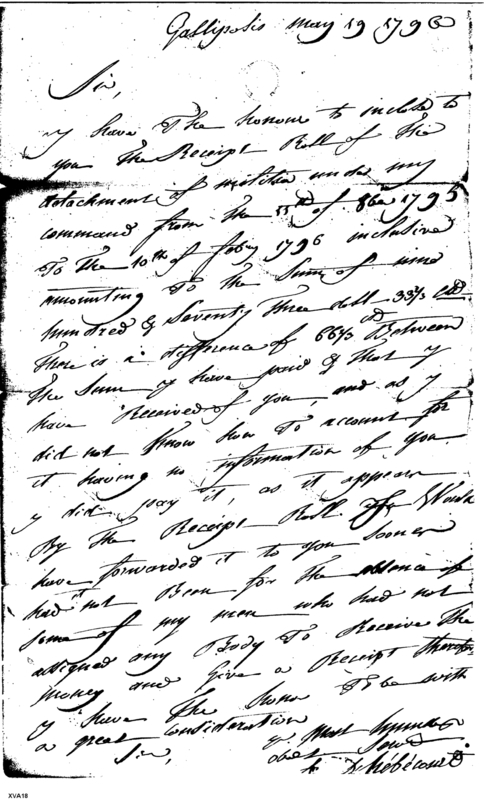 Gallipolis may 19 1796
Sir,
y have The honour to inclose to
you The Receipt Roll of The
detachment of militia under my
command from the 11th of 8ber 1795
To The 10th of feby 1796 inclusive
amounting To the Sum of nine
hundred & Seventy Three doll 33⅓ cts
There is a difference of 66⅔ cts Between
The Sum y have paid & that y
have Received of you, and as y
did not Know how To account for
it having no information of you
y did pay it, as it appears
By The Receipt Roll y Would
have forwarded it to you sooner
had it not Been for The absence of
some of my men who had not
assigned any Body To Receive The
money and Give a Receipt therefor
y have The honor To be with
a great consideration
Sir, yr Most humble
obdt Servt
hébécourt
XVA18